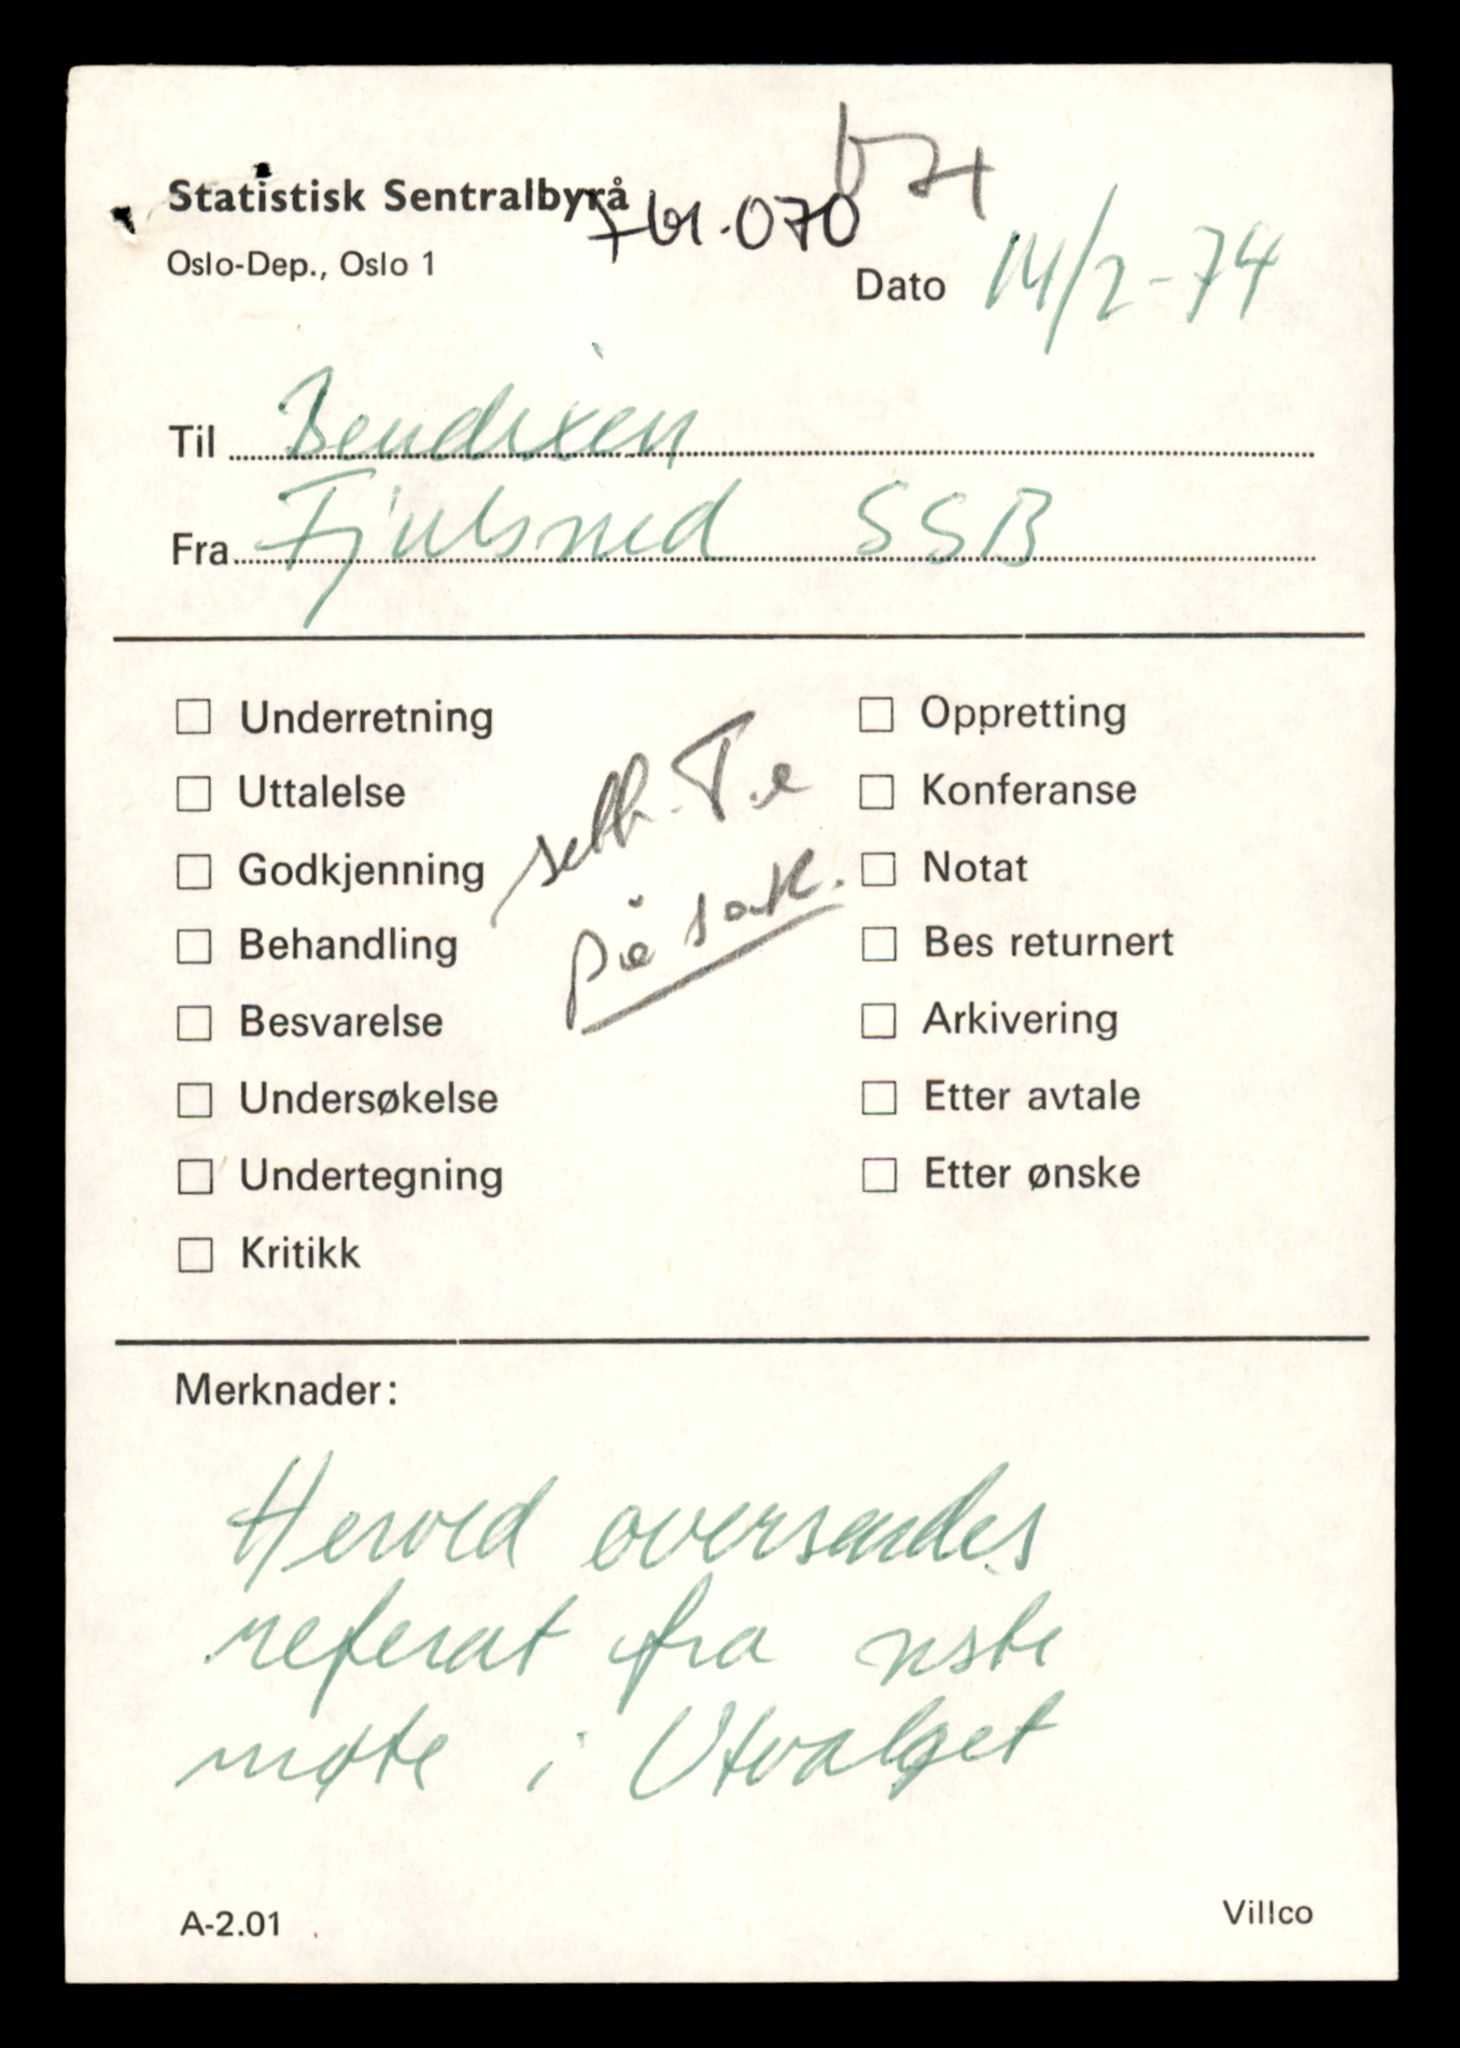 Statistisk Sentralbyrå
Oslo-Dep., Oslo 1
070
Dato 14/2-74
Til Bendixen
Fra Fjulsrud SSB
Underretning
Uttalelse
Godkjenning
Behandling
Besvarelse
Undersøkelse
Undertegning
Kritikk
på sak.
Oppretting
Konferanse
Notat
Bes returnert
Arkivering
Etter avtale
Etter ønske
Merknader:
Herved oversendes
referat fra siste
møte i Utvalget
A-2.01
Villco